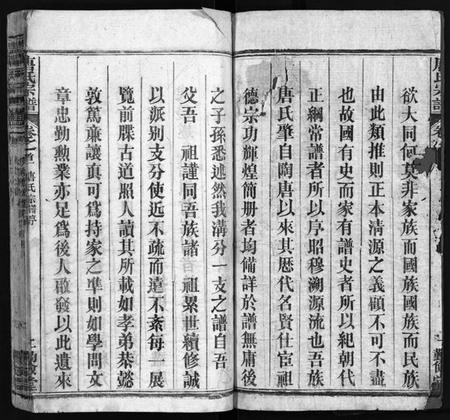 唐氏宗譜
欲大同何莫非家族而國族國族而民族
由此類推則正本清源之義顧不可不盡
也故國有史而家有譜史者所以紀朝代
正綱常譜者所以序昭穆溯源流也吾族
唐氏肇自陶唐以來其歷代名賢仕宦祖
德宗功輝煌簡冊者均備詳於譜無庸後
之子孫悉述然我溝分一支之譜自吾
父吾 祖謹同吾族諸 祖累世續修誠
以派別支分使近不疏而遠不紊每一展
覽前牒古道照人讀其所載如孝弟恭懿
敦篤廉讓真可為持家之準則如學問文
章忠勤勲業亦足為後人啟發以此遺來
唐氏宗譜 卷之首 唐氏宗譜序